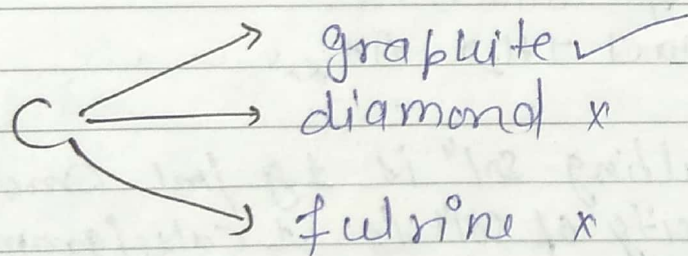 graphite ✓
C diamond x
fulrine x